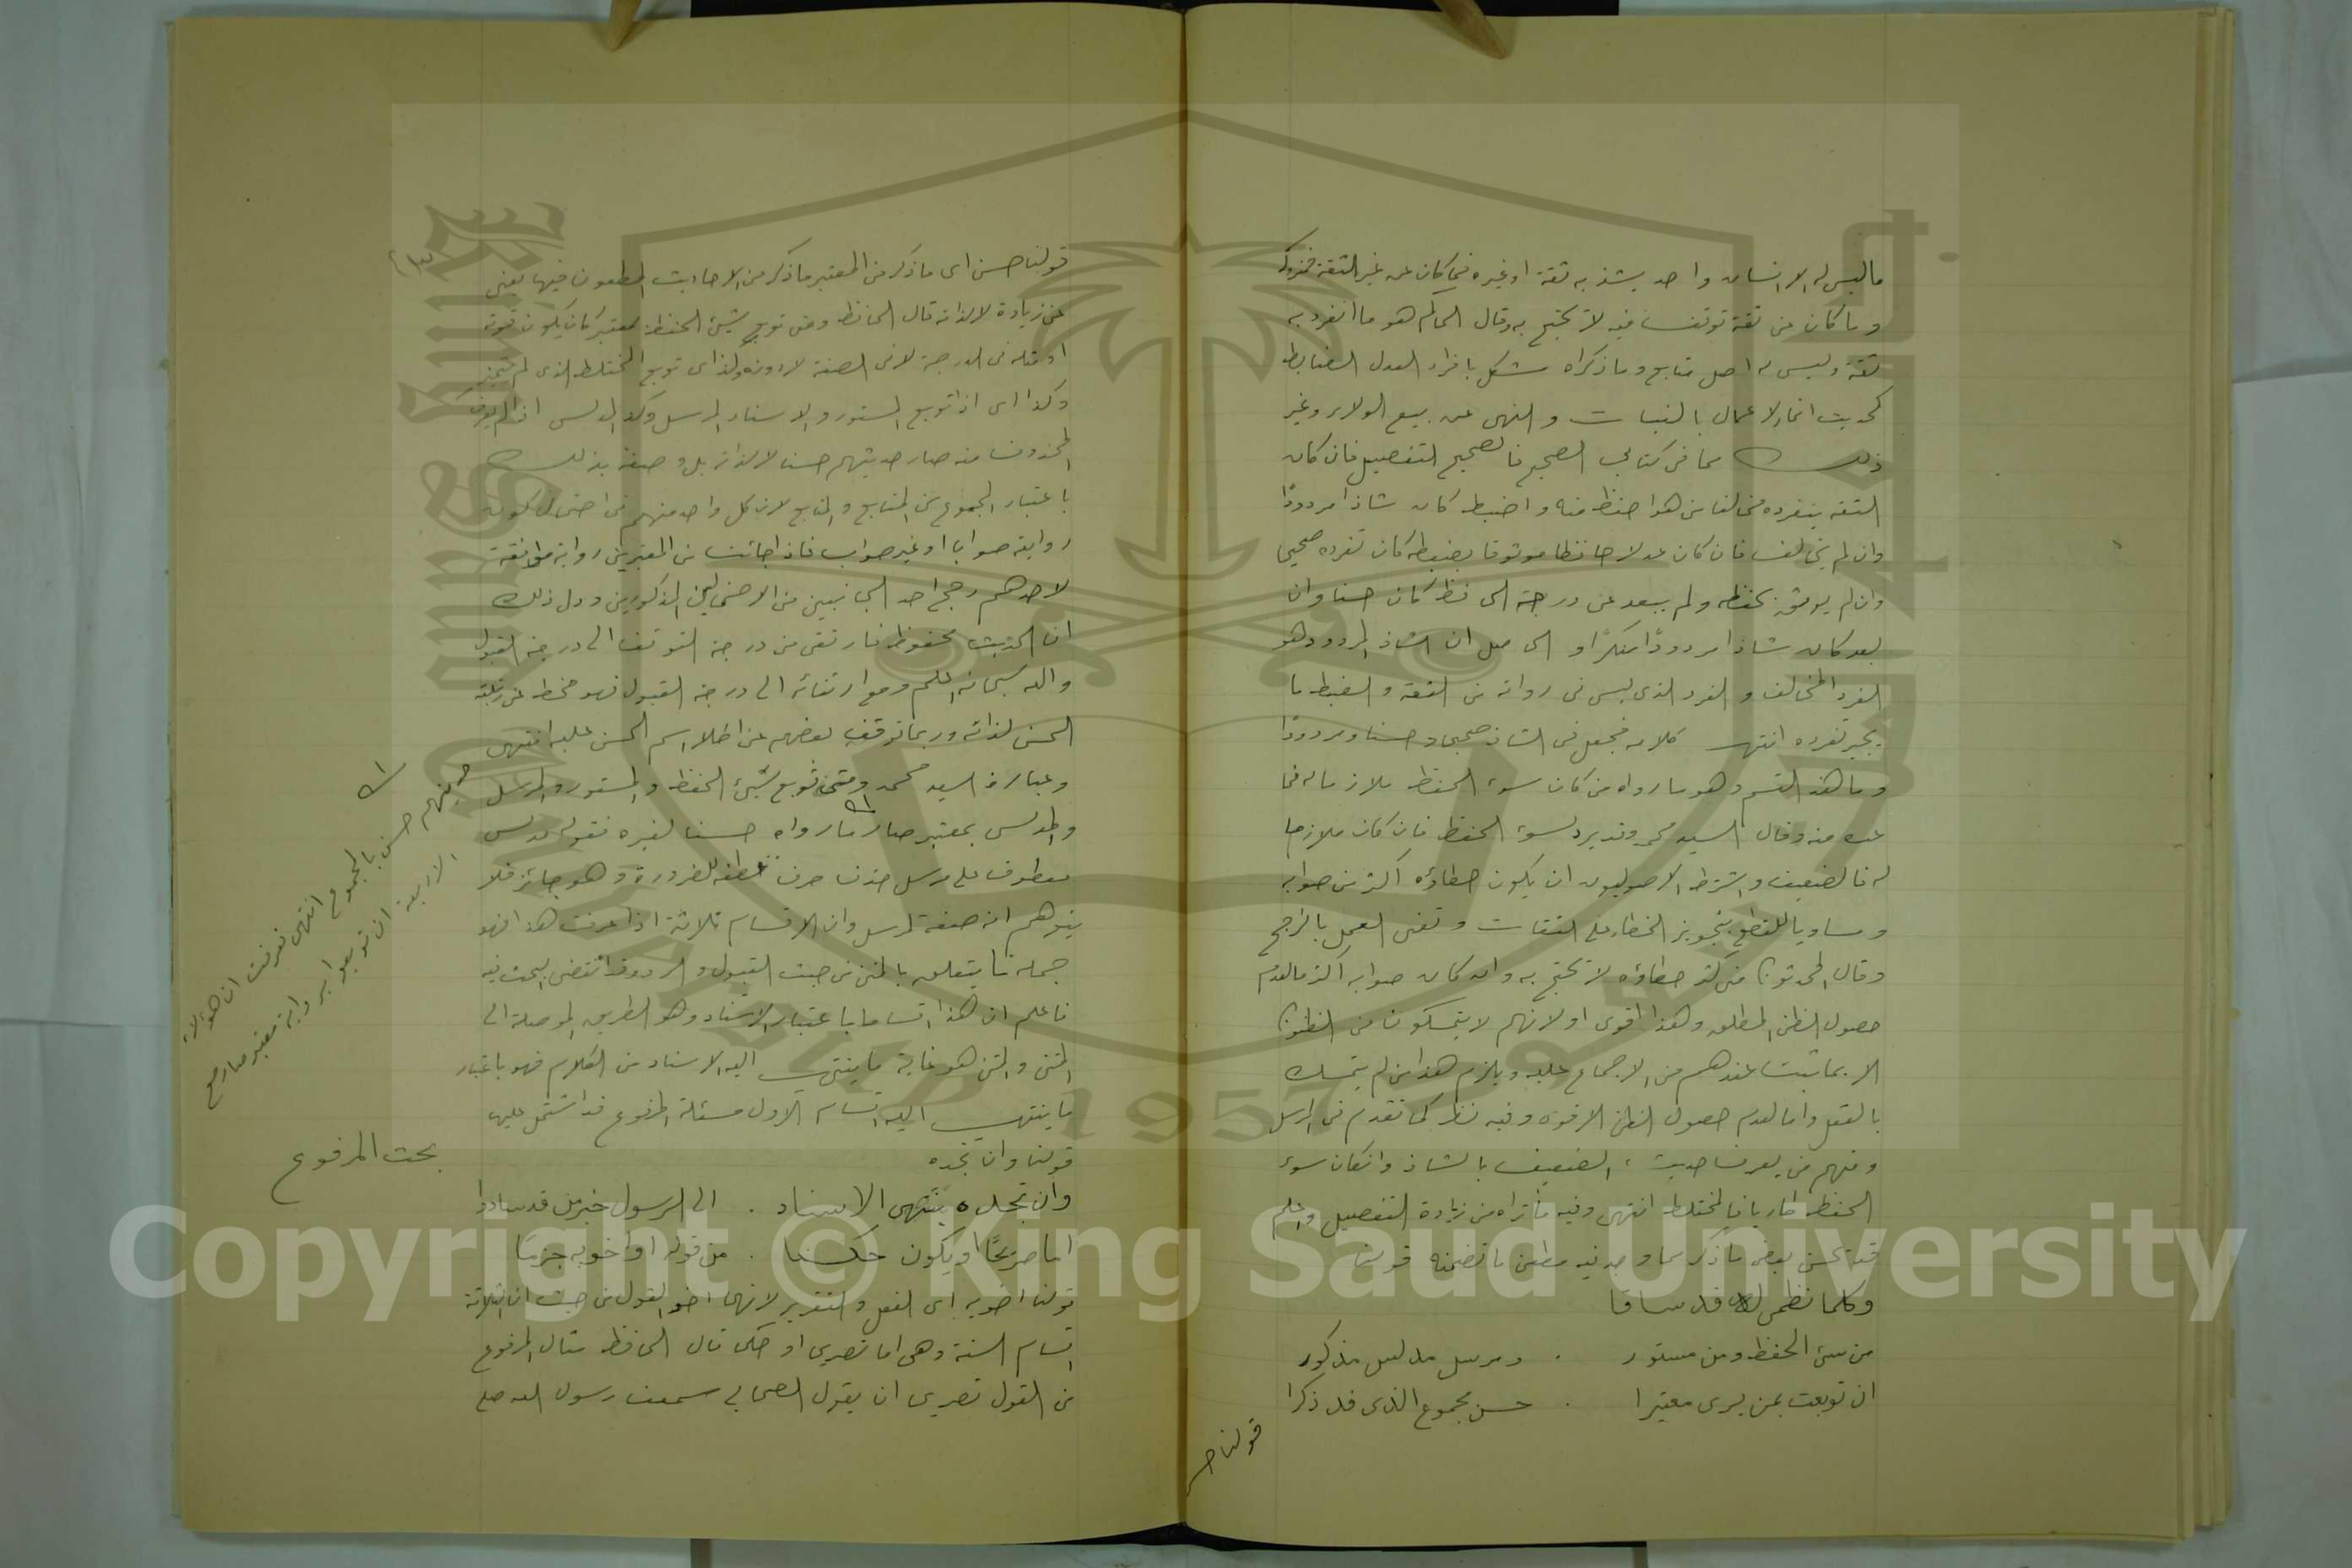 ما ليس له الا اسناد واحد يشذ به ثقة او غيره فما كان عن غير الثقة فمتروك
وما كان عن ثقة توقف فيه لا يحتج به وقال الحاكم هو ما انفرد به
ثقة وليس له اصل متابع وما ذكراه مشكل بافراد العدل الضابط
كحديث انما الاعمال بالنيات والنهى عن بيع الولاء وغير
ذلك مما فى كتابي الصحيح فالصحيح التفصيل فان كان
الثقة بتفرده مخالفا من هو احفظ منه واضبط كان شاذا مردودًا
وان لم يخالف فان كان عدلا حافظا موثوقا بضبطه كان تفرده صحيحا
وان لم يوثق بحفظه ولم يبعد عن درجة الحافظ كان حسنا وان
بعد كان شاذا مردودًا منكرًا والحاصل ان الشاذ المردود هو
الفرد المخالف والفرد الذى ليس فى رواته من الثقة والضبط ما
يجبر تفرده انتهى كلامه فجعل فى الشاذ صحيحا وحسنا ومردودًا
وما هذا القسم وهو ما رواه من كان سوء الحفظ ملازما له فما
عده منه وقال السيد محمد وقد يرد لسوء الحفظ فان كان ملازما
له فالضعيف واشترط الاصوليون ان يكون خطاؤه اكثر من صوابه
ومساويا للقطع بتجويز الخطاء على الثقات وتفى العمل بالراجح
وقال المحدثون من كثر خطاؤه لا يحتج به وان كان صوابه اكثر مالعدم
حصول الظن المطلق وهذا اقوى او لانهم لا يتمسكون من الظنون
الا بما ثبت عندهم من الاجماع عليه ويلزم هذا من لم يتمسك
بالعقل واما لعدم حصول الظن الاقوى وفيه نظر كما تقدم فى المرسل
ومنهم من يعرف حديث الضعيف بالشاذ وان كان سوء
الحفظ طاريا فالمختلط انتهى وفيه ما تراه من زيادة التفصيل واعلم
قد يحسن بعض ما ذكر مما وجد فيه مطعن ما تضمنه قولنا
وكلما نظمى له قد ساقا
من سيئ الحفظ ومن مستور . ومرسل مدلس مذكور
ان توبعت بمن يرى معتبرا . حسن مجموع الذى قد ذكرا
قولنا حسـ
قولنا حسن اى ما ذكر من المعتبر ما ذكر من الاحاديث المطعون فيها يعنى
عن زيادة لا لذاته قال الحافظ ومتى توبع سيئ الحفظ بمعتبر كان يكون فوقه
او مثله فى الدرجة لا فى الصفة لا دونه ولذا اى توبع المختلط الذى لم يتميز
وكذا اى اذا توبع المستور والاسناد المرسل وكذا المدلس اذا لم يعرف
المحذوف منه صار حديثهم حسنا لا لذاته بل وصفه بذلك
باعتبار المجموع من المتابع والمتابع لان كل واحد منهم فى احتمال كون
روايته صوابا او غير صواب فاذا جائت من المعتبرين رواية موافقة
لاحدهم رجح احد الجانبين من الاحتمالين المذكورين ودل ذلك
ان الحديث محفوظ فارتقى من درجة التوقف الى درجة القبول
والله سبحانه اعلم ومع ارتقائه الى درجة القبول فهو منحط عن رتبة
الحسن لذاته وربما توقف بعضهم عن اطلاق اسم الحسن عليه انتهى
وعبارة السيد محمد ومتى توبع سيئ الحفظ والمستور والمرسل
والمدلس بمعتبر صار ما رواه حسنا لغيره فقوله مدلس
معطوف على مرسل حذف حرف عطفه للضرورة وهو جائز فلا
يتوهم انه صفة لمرسل وان الاقسام ثلاثة اذا عرفت هذا فهو
جملة ما يتعلق بالمتن من حيث القبول والرد وقد انقضى البحث فيه
فاعلم ان هذا اقسام باعتبار الاسناد وهو الطريق الموصلة الى
المتن والمتن هو غاية ما ينتهى اليه الاسناد من الكلام فهو باعتبار
ما ينتهى اليه اقسام الاول مسئلة المرفوع قد اشتمل عليها
قولنا وان تجده
وان تجده ينتهى الاسناد . الى الرسول خير من قد سادوا
اما صريحًا او يكون حكما . من قوله او اخويه جزما
قولنا اخويه اى الفعل والتقرير لانهما اخو القول من حيث ان الثلاثة
اقسام السنة وهى اما تصريحا او حكما قال الحافظ مثال المرفوع
من القول تصريحا ان يقول الصحابى سمعت رسول الله صلع
حديثهم حسن بالمجموع انتهى فعرفت ان هؤلاء
الاربعة ان توبعوا برواية معتبر صار مع
بحث المرفوع